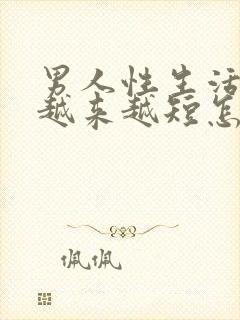 男人性生活
越来越短怎
佩佩